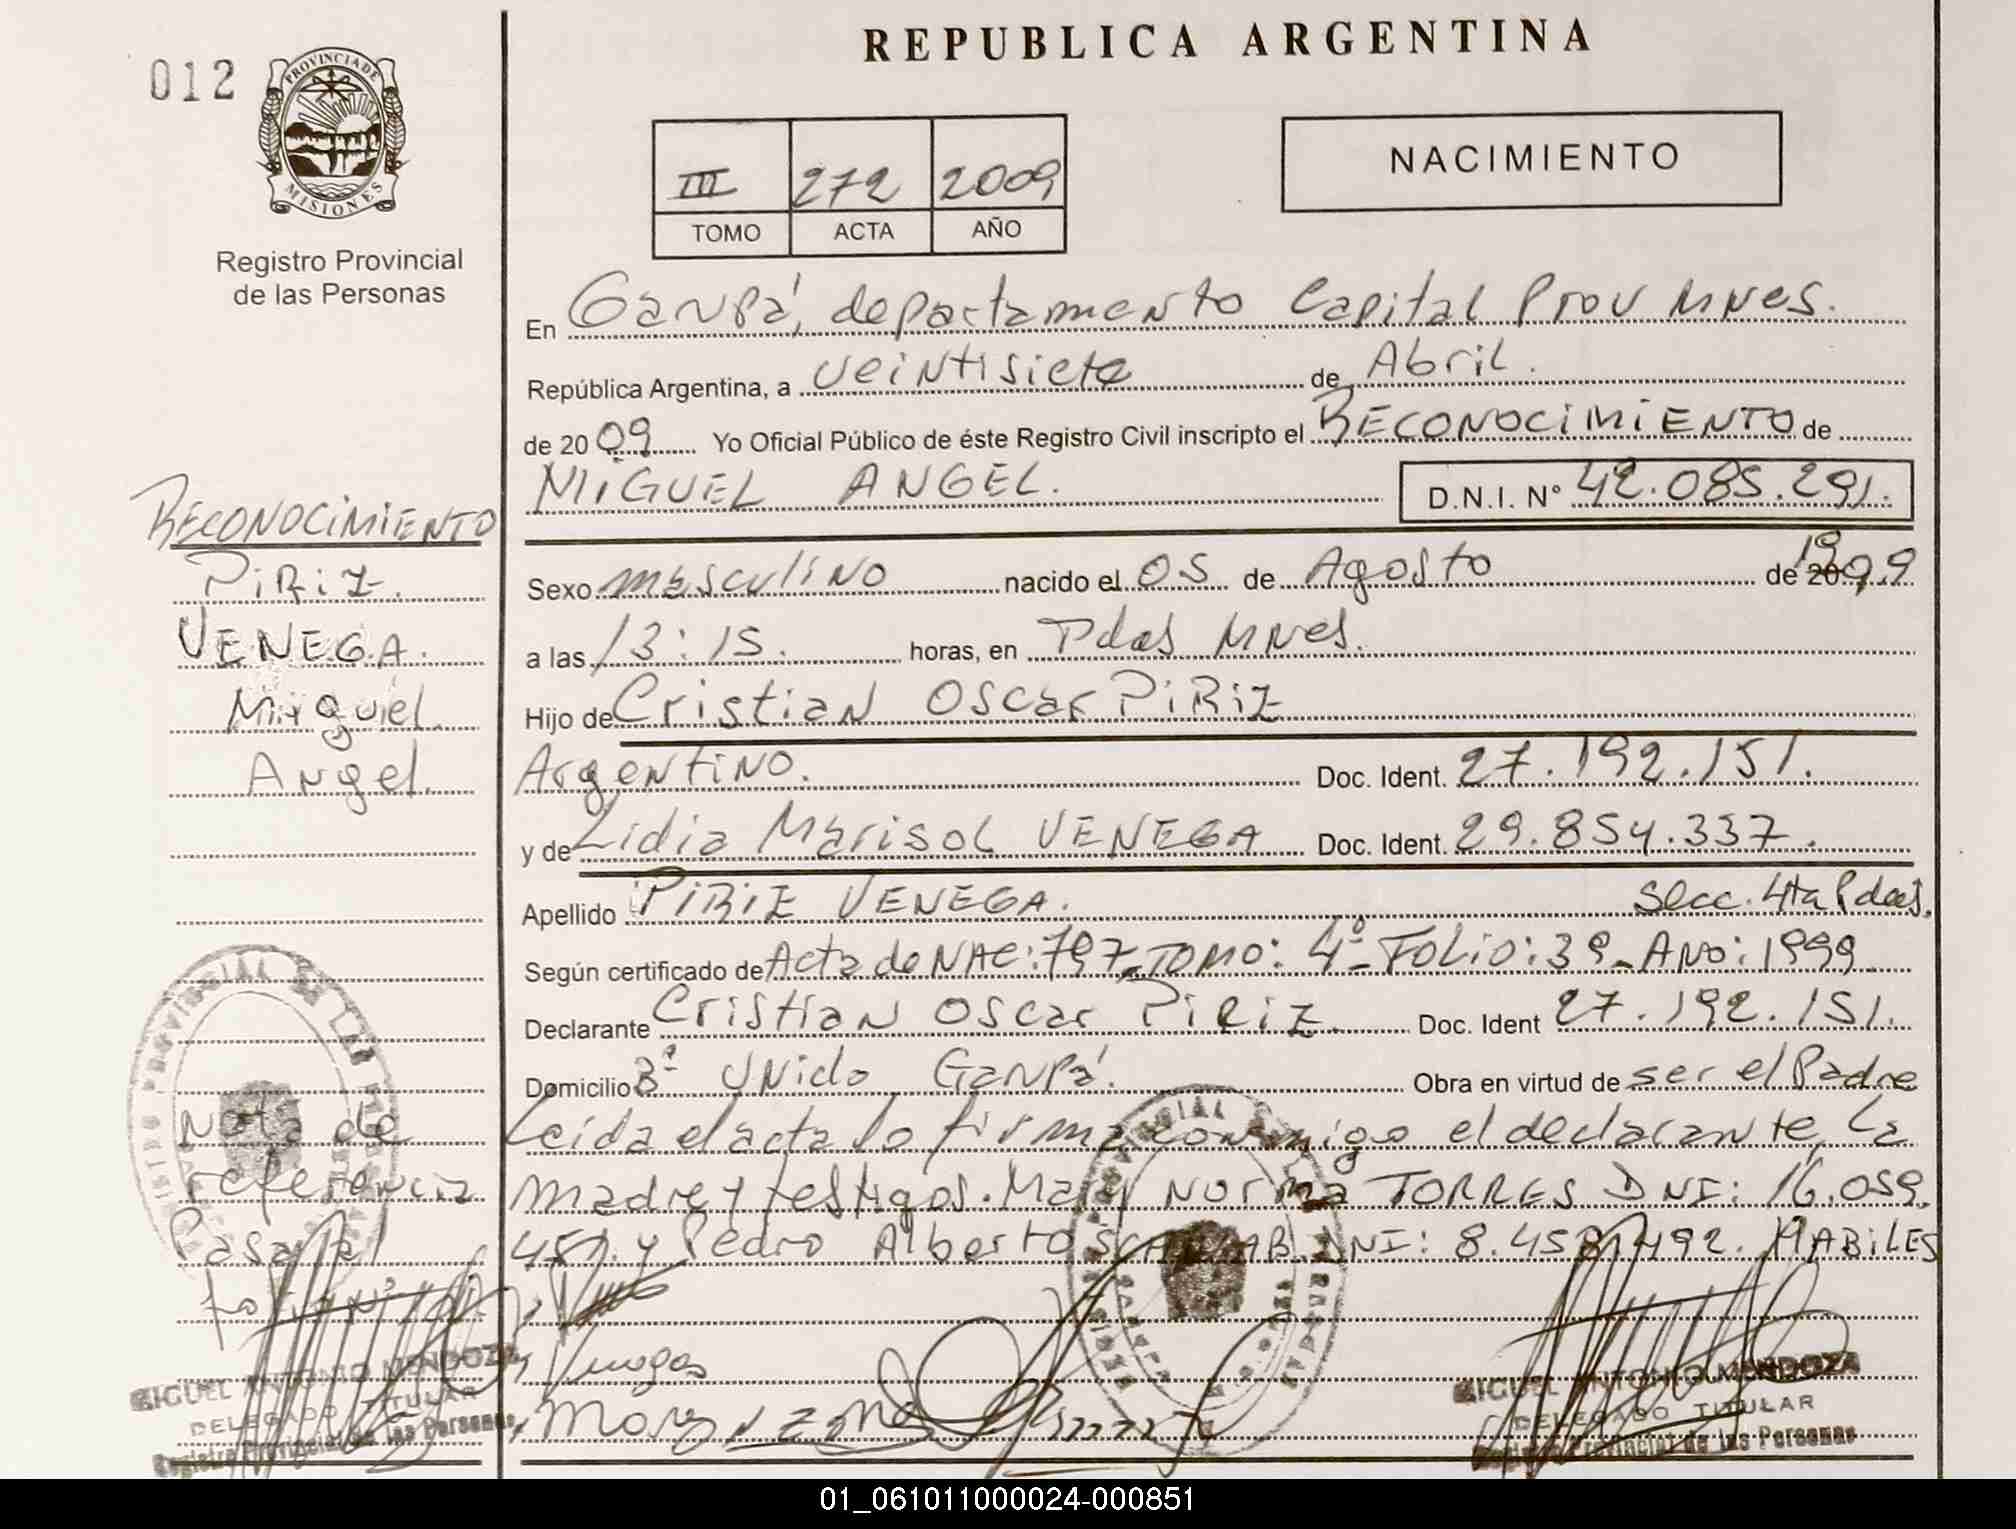 REPUBLICA ARGENTINA
012
PROVINCIA DE
MISIONES
Registro Provincial
de las Personas
III 272 2009
TOMO ACTA AÑO
NACIMIENTO
En Garupá, departamento Capital Prov Mnes.
República Argentina, a veintisiete de Abril.
de 2009 Yo Oficial Público de éste Registro Civil inscripto el RECONOCIMIENTO de
MIGUEL ANGEL. D.N.I. N° 42.085.291.
RECONOCIMIENTO
PIRIZ.
VENEGA.
Miguel
Angel.
Sexo masculino nacido el 05 de Agosto de 1999
a las 13:15. horas, en Pdas Mnes.
Hijo de Cristian Oscar PIRIZ
Argentino. Doc. Ident. 27.192.151.
y de Lidia Marisol VENEGA Doc. Ident. 29.854.337.
Apellido PIRIZ VENEGA. Secc. 4ta Pdas.
Según certificado de Acta de NAC: 797 TOMO: 4º- FOLIO: 39- AÑO: 1999
Declarante Cristian Oscar PIRIZ. Doc. Ident 27.192.151.
Domicilio Bº Unido Garupá. Obra en virtud de ser el Padre
Leida el acta la firma conmigo el declarante, la
madre y testigos. Mary Norma TORRES DNI: 16.059.
451. y Pedro Alberto DNI: 8.458.492. HABILES
Nota de
referencia
Pasa al
MIGUEL ANTONIO MENDOZA
DELEGADO TITULAR
Registro Provincial de las Personas
MIGUEL ANTONIO MENDOZA
DELEGADO TITULAR
Registro Provincial de las Personas
01_061011000024-000851